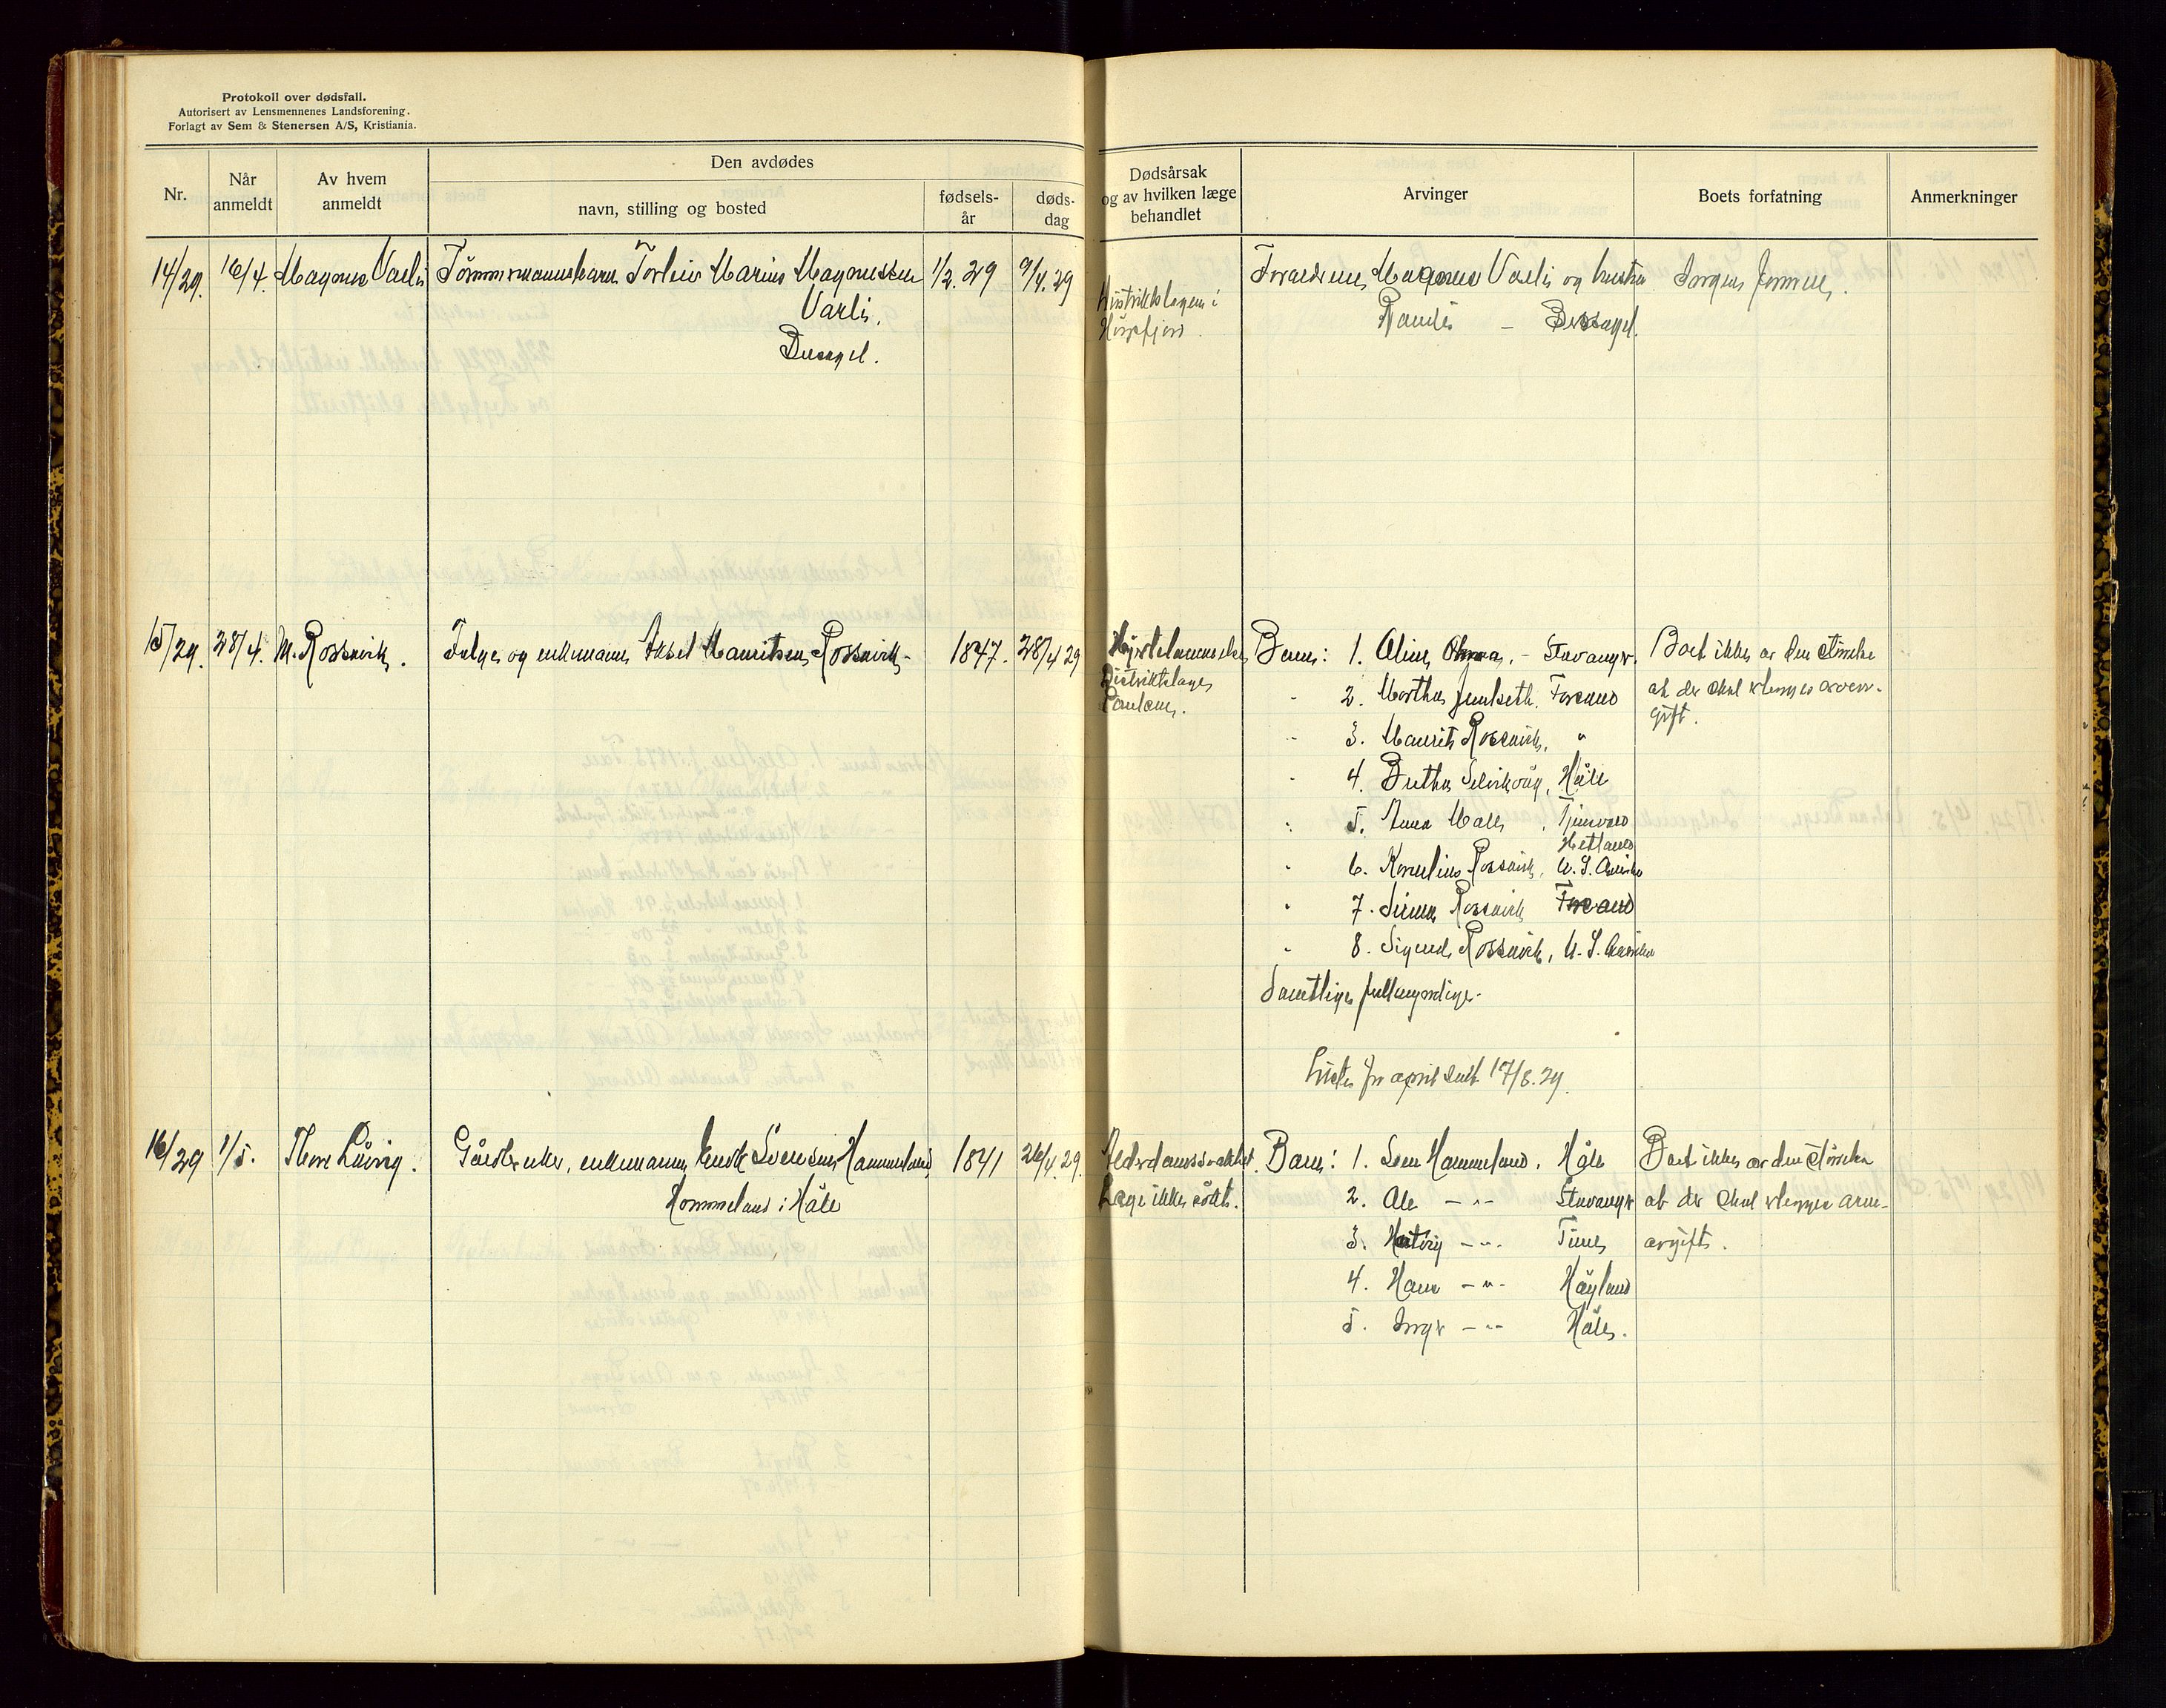 Protokoll over dødsfall.
Autorisert av Lensmennenes Landsforening.
Forlagt av Sem & Stenersen A/S, Kristiania.
Nr.
Når anmeldt
Av hvem anmeldt
Den avdødes
navn, stilling og bosted
fødsels-år
døds-dag
Dødsårsak og av hvilken læge behandlet
Arvinger
Boets forfatning
Anmerkninger
14/29. 16/4. Magnus Varli Tömmermannsbarn Torleiv Marius Magnussen 1/2. 29 9/4. 29
Varli,
Dersagel.
Distriktslægen i
Högsfjord.
Forældrene Magnus Varli og hustru
Randi - Bersagel.
Ingen formue.
15/29. 28/4. M. Rossavik. Følge og enkemann Aksel Mauritsen Rossavik. 1847. 28/4 29
Hjertelammelse
Distriktslæge
Paulsen.
Barn: 1. Aline - Stavanger.
" 2. Martha Forsand
" 3. Maurits Rossavik, "
" 4. Bertha Selvikvåg, Håle
" 5. Anna Malle, Tjensvold
Hetland
" 6. Kornelius Rossavik, U. S. Amerika
" 7. Rossavik Forsand
" 8. Sigurd Rossavik, U. S. Amerika
Samtlige fullmyndige.
Boet ikke av den størrelse
at der skal erlegges arveav-
gift.
Liste for april sendt 17/8. 29.
16/29 1/5. Thore Gårdbruker, enkemann Enok Svensen Hommeland, 1841 26/4. 29.
Hommeland i Håle
Alderdomssvakhet.
Læge ikke søkt.
Barn: 1. Sven Hommeland, Håle
2. Ole - " - Stavanger
3. - " - Time
4. Hans - " - Høyland
5. Inger - " - Håle.
Boet ikke av den størrelse
at der skal erlegges arve-
avgift.